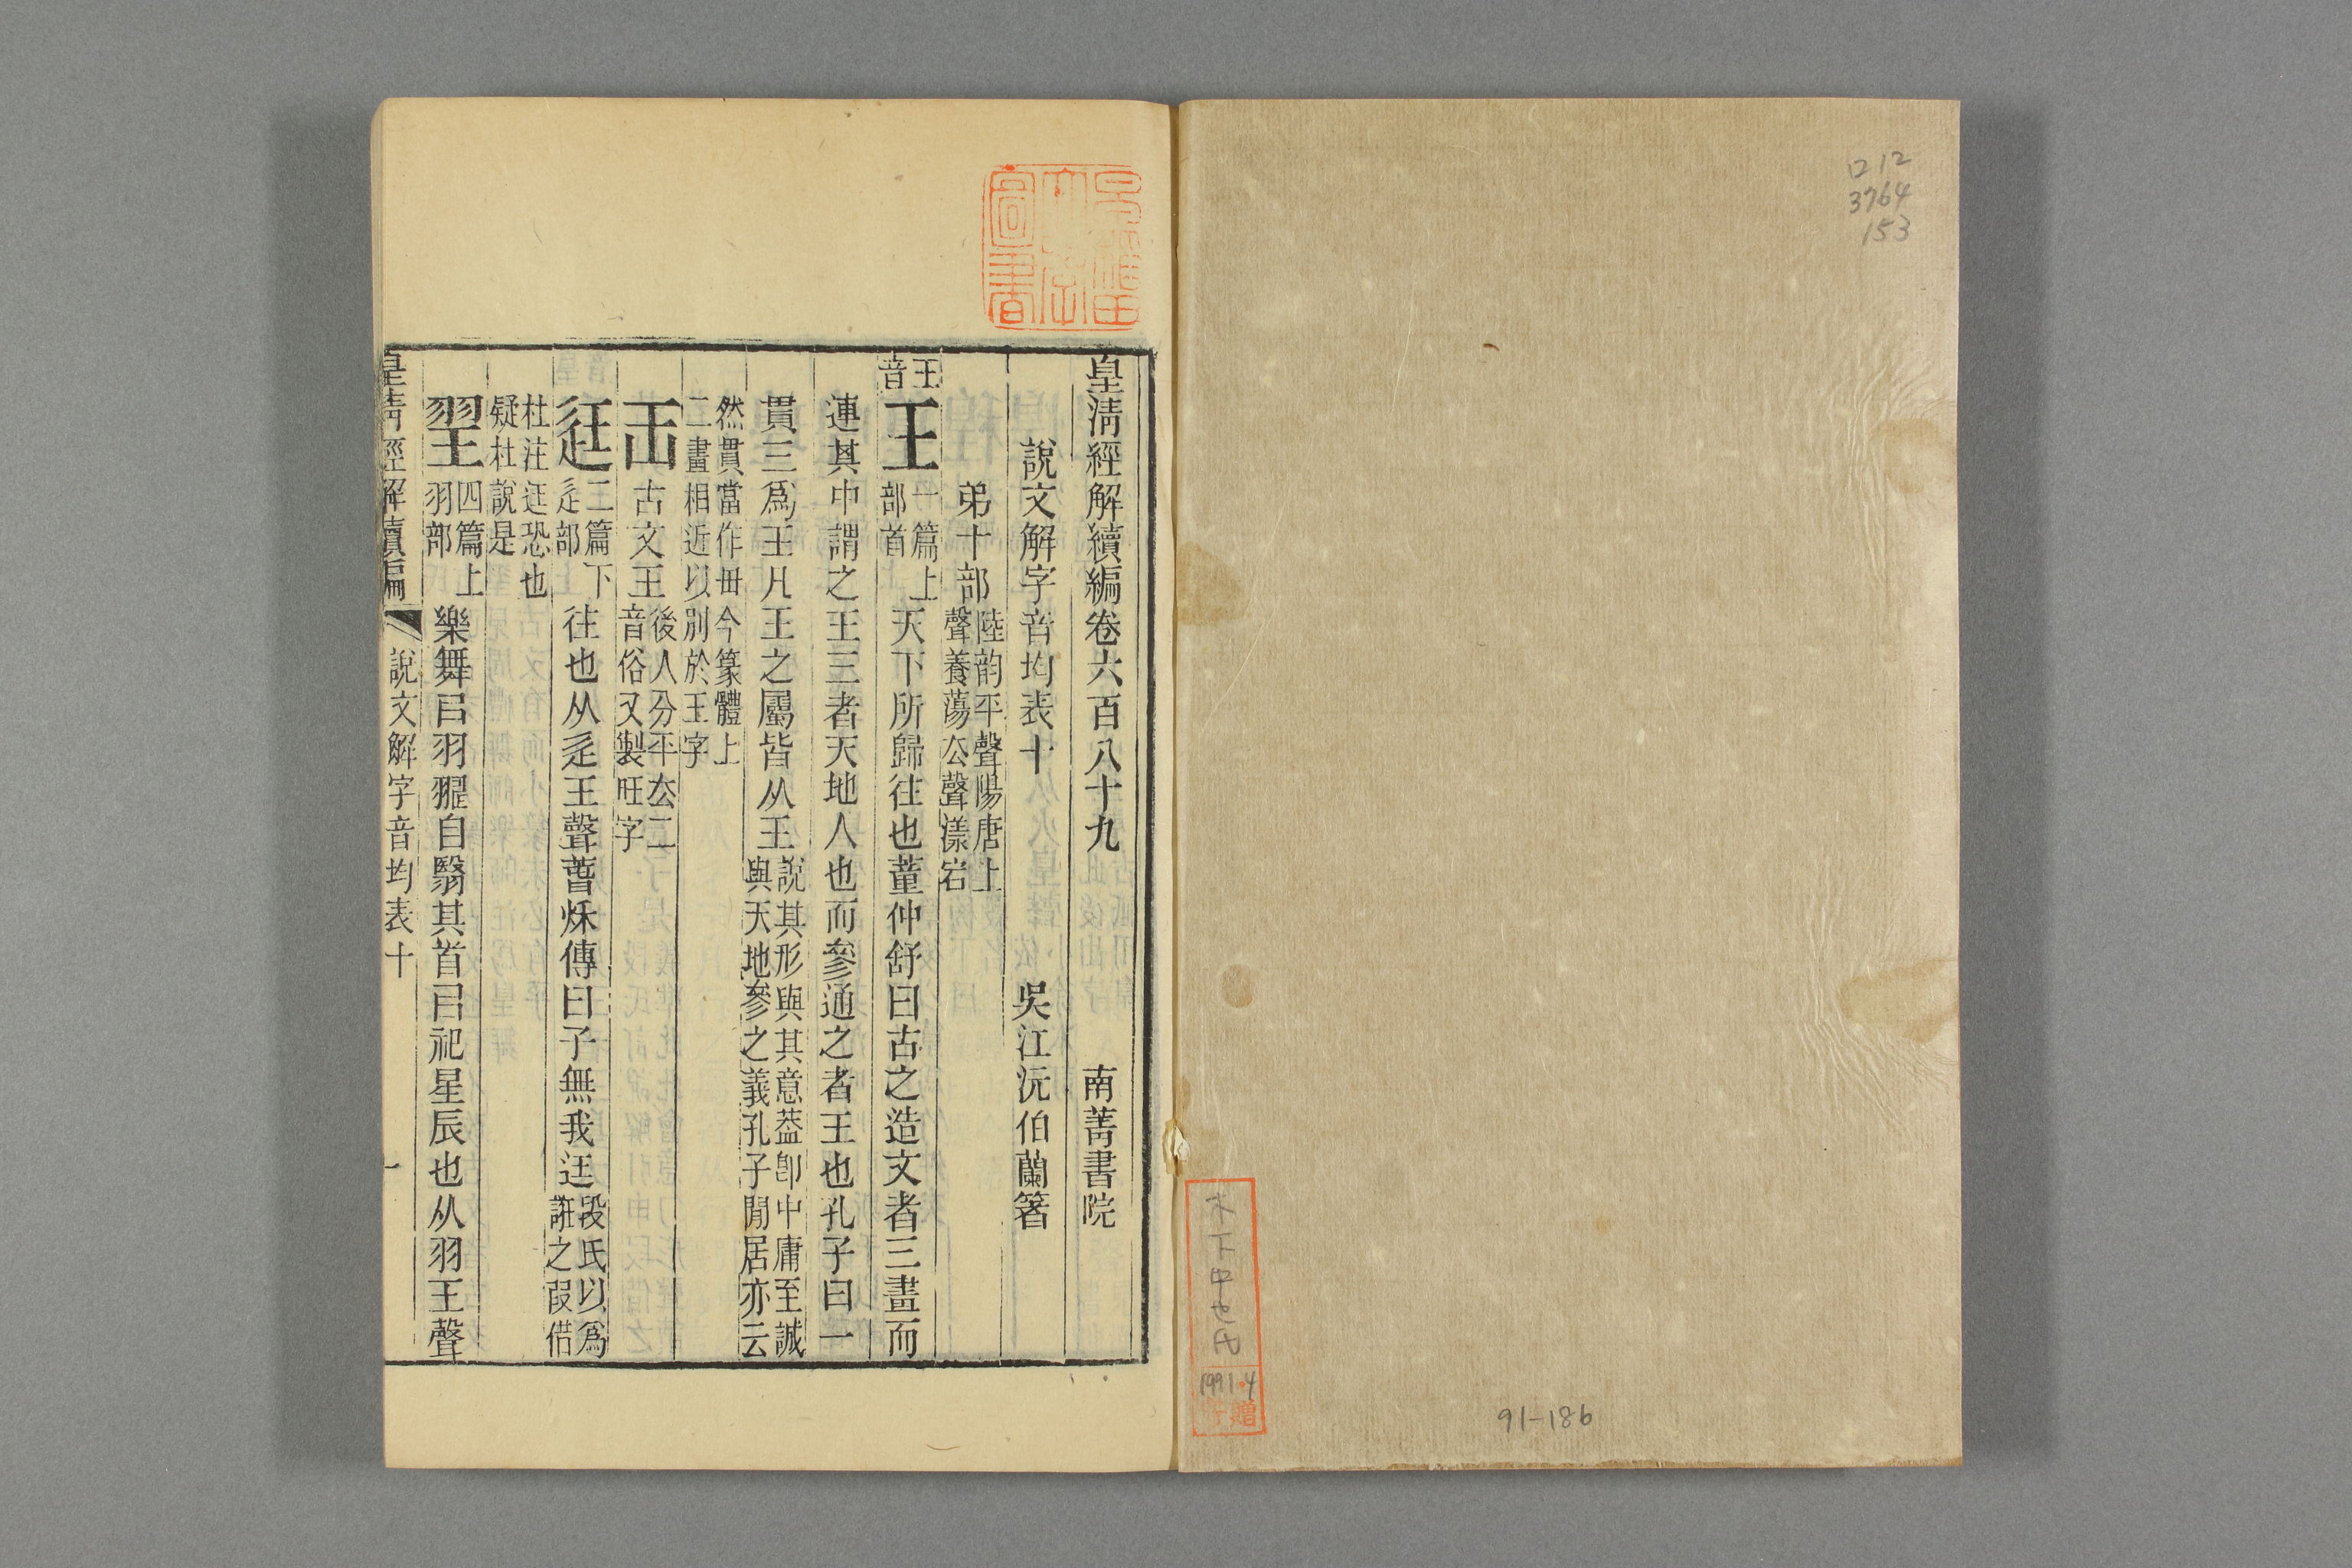 212
3764
153
91-186
木下中也氏
1991.4
贈
圖書
皇淸經解續編卷六百八十九
南菁書院
說文解字音均表十
吳江沅伯蘭箸
弟十部
陸韵平聲陽唐上
聲養蕩厺聲漾宕
王
音
王
一篇上
部首
天下所歸往也董仲舒曰古之造文者三畫而
連其中謂之王三者天地人也而參通之者王也孔子曰一
貫三爲王凡王之屬皆从王
說其形與其意葢卽中庸至誠
與天地參之義孔子閒居亦云
然貫當作毌今篆體上
二畫相近以別於王字
古文王
後人分平厺二
音俗又製旺字
二篇下
辵部
往也从辵王聲萅秌傳曰子無我迋
段氏以爲
誑之叚借
杜注迋恐也
疑杜說是
四篇上
羽部
樂舞㠯羽䎘自翳其首㠯祀星辰也从羽王聲
皇淸經解續編
說文解字音均表十
一